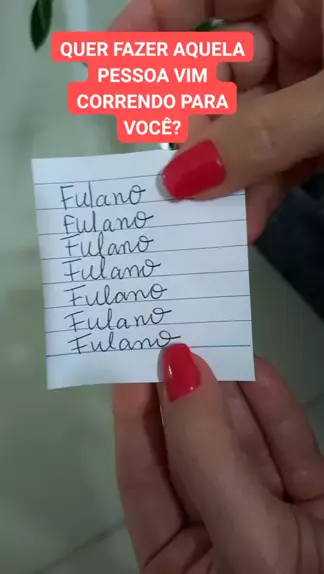 QUER FAZER AQUELA
PESSOA VIM
CORRENDO PARA
VOCÊ?
Fulano
Fulano
Fulano
Fulano
Fulano
Fulano
Fulano